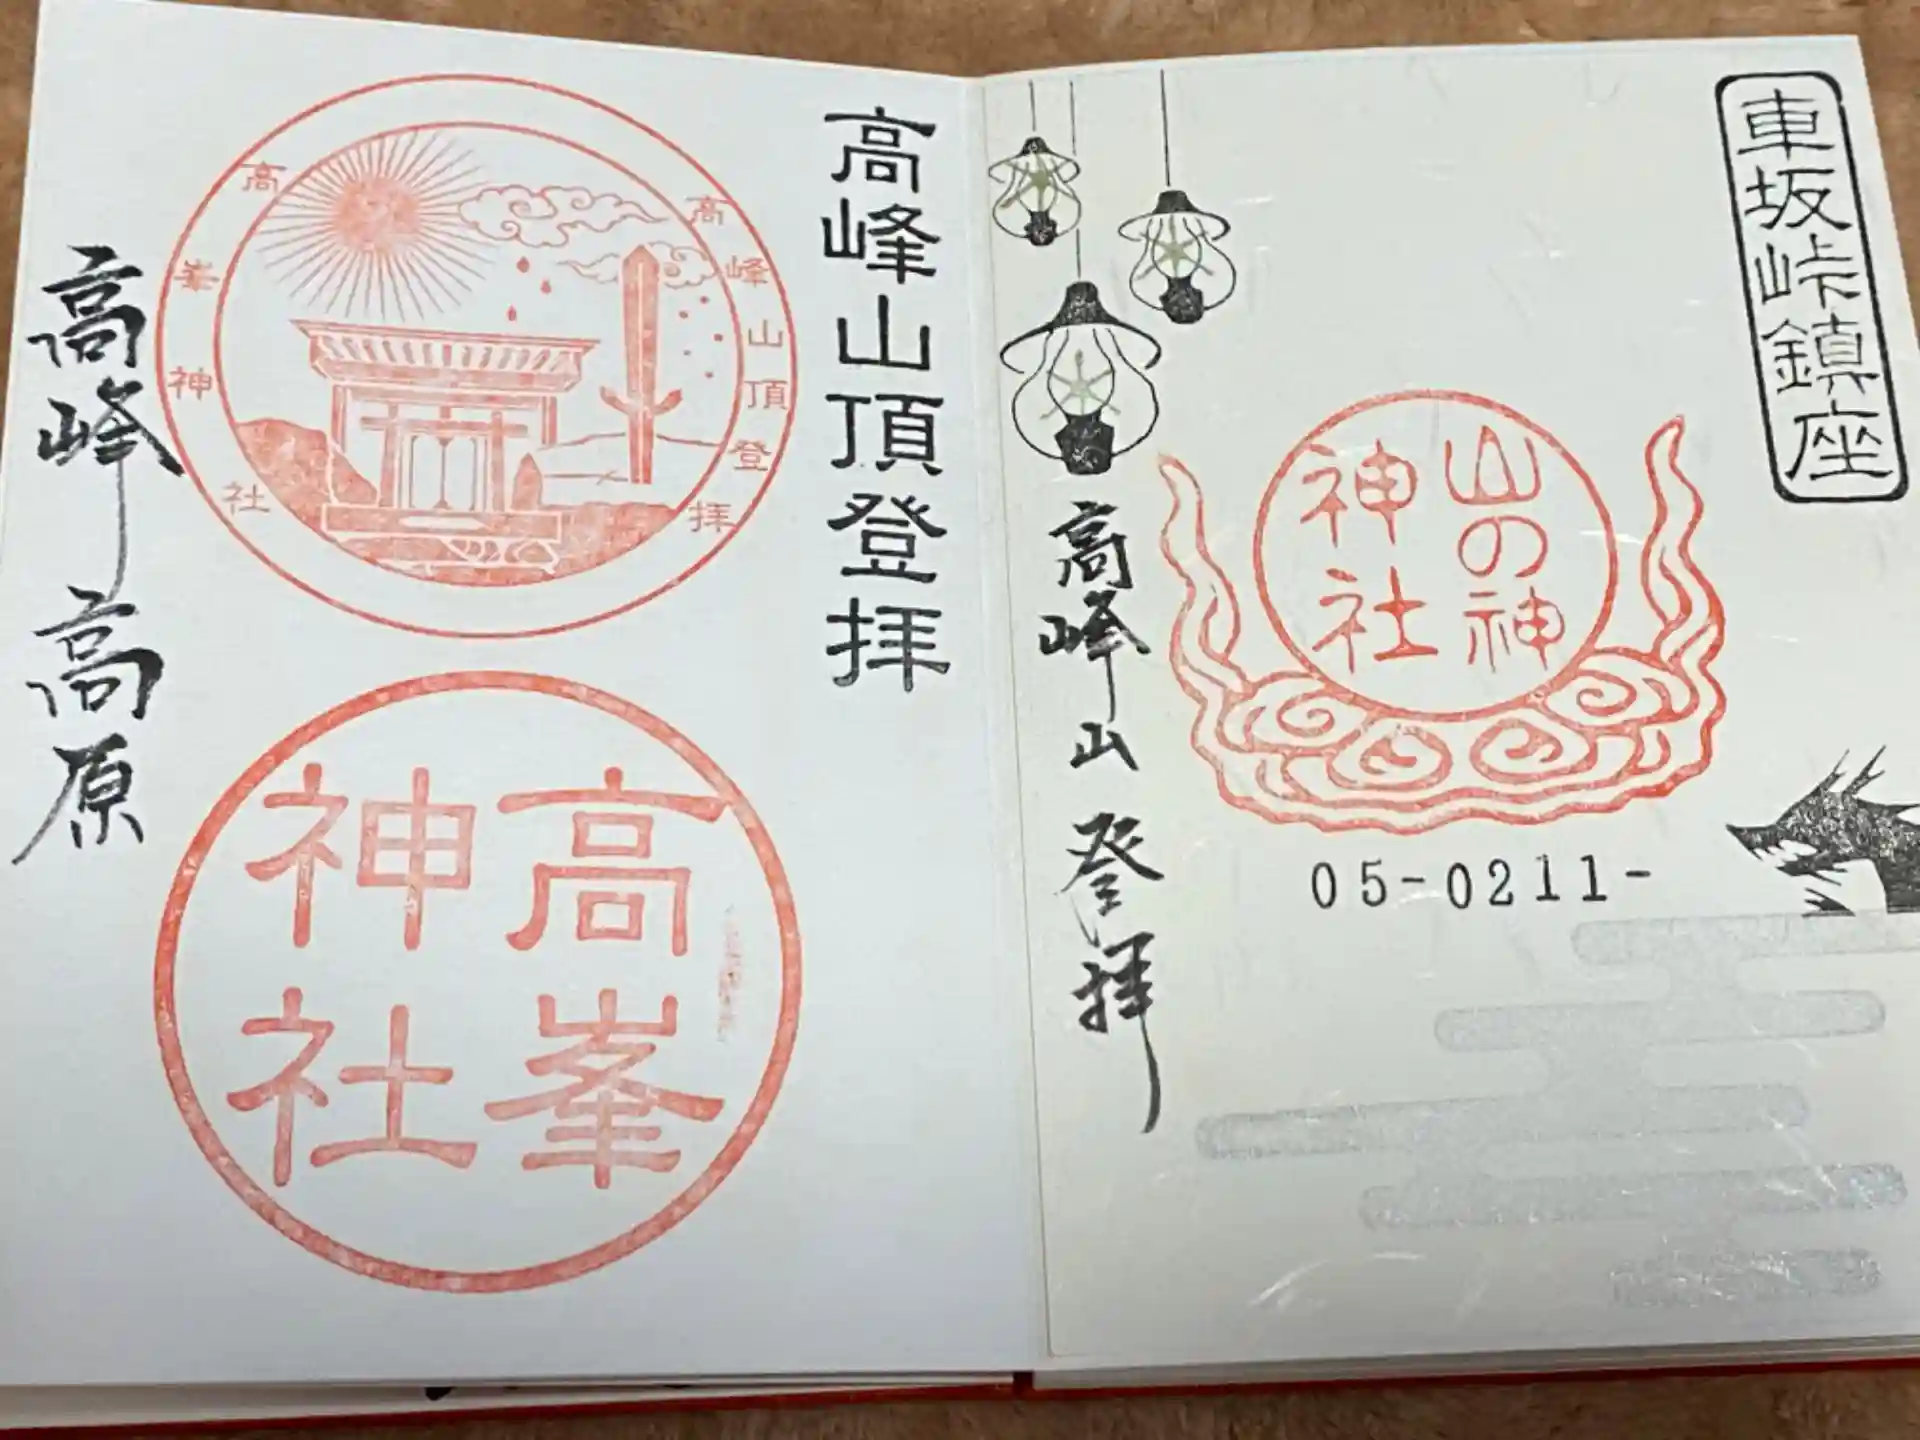 車坂峠鎮座
山の神
神社
05-0211-
高峰山 登拝
高峰山頂登拝
高峰山頂登拝
高峯神社
高峯
神社
高峰高原